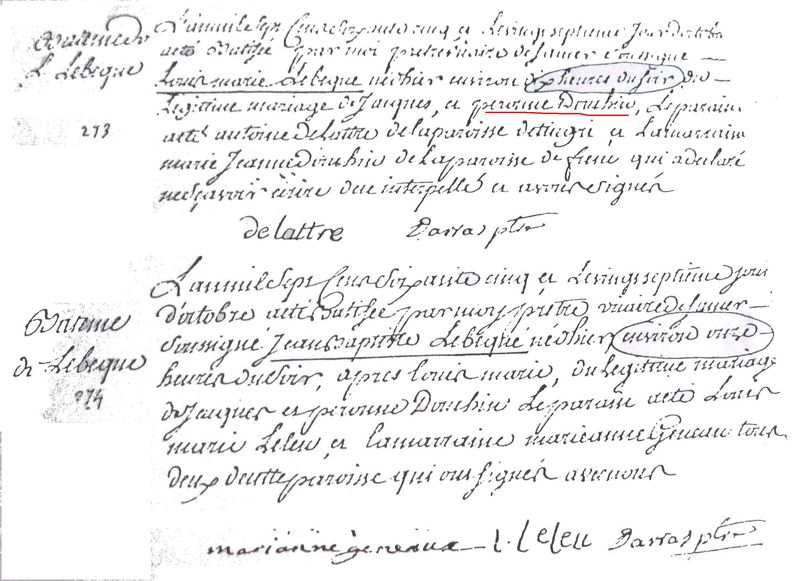 Batême de
L Lebegue
273
L'an mil sept Cens soixante cinq et le vingt septieme jour d'octobre
a eté Batisé par moi pretre vicaire de samer soussigné
Louis marie Lebegue né hier environ dix heures du soir du
Legitime mariage de Jacques, et peronne Douchin, Le parain
a eté antoine De Lattre de la paroisse de tingri et La maraine
marie Jeanne Douchin de La paroisse de frenc qui a declaré
ne sçavoir écrire de ce interpellé et avons signés
delattre Darras ptre
Batême
de Lebegue
274
L'an mil sept Cens soixante cinq et Le vingt septième jour
d'octobre a eté Batisée par moy prêtre vicaire de samer
soussigné Jean Baptiste Lebegué né hier environ onze
heures du soir, apres louis marie, du Legitime mariage
de Jacques et peronne Douchin Le parain a eté Louis
marie Leleu et la marraine marie anne Geneau tous
deux de cette paroisse qui ont signés avec nous
marianne geneaux L. Leleu Darras ptre